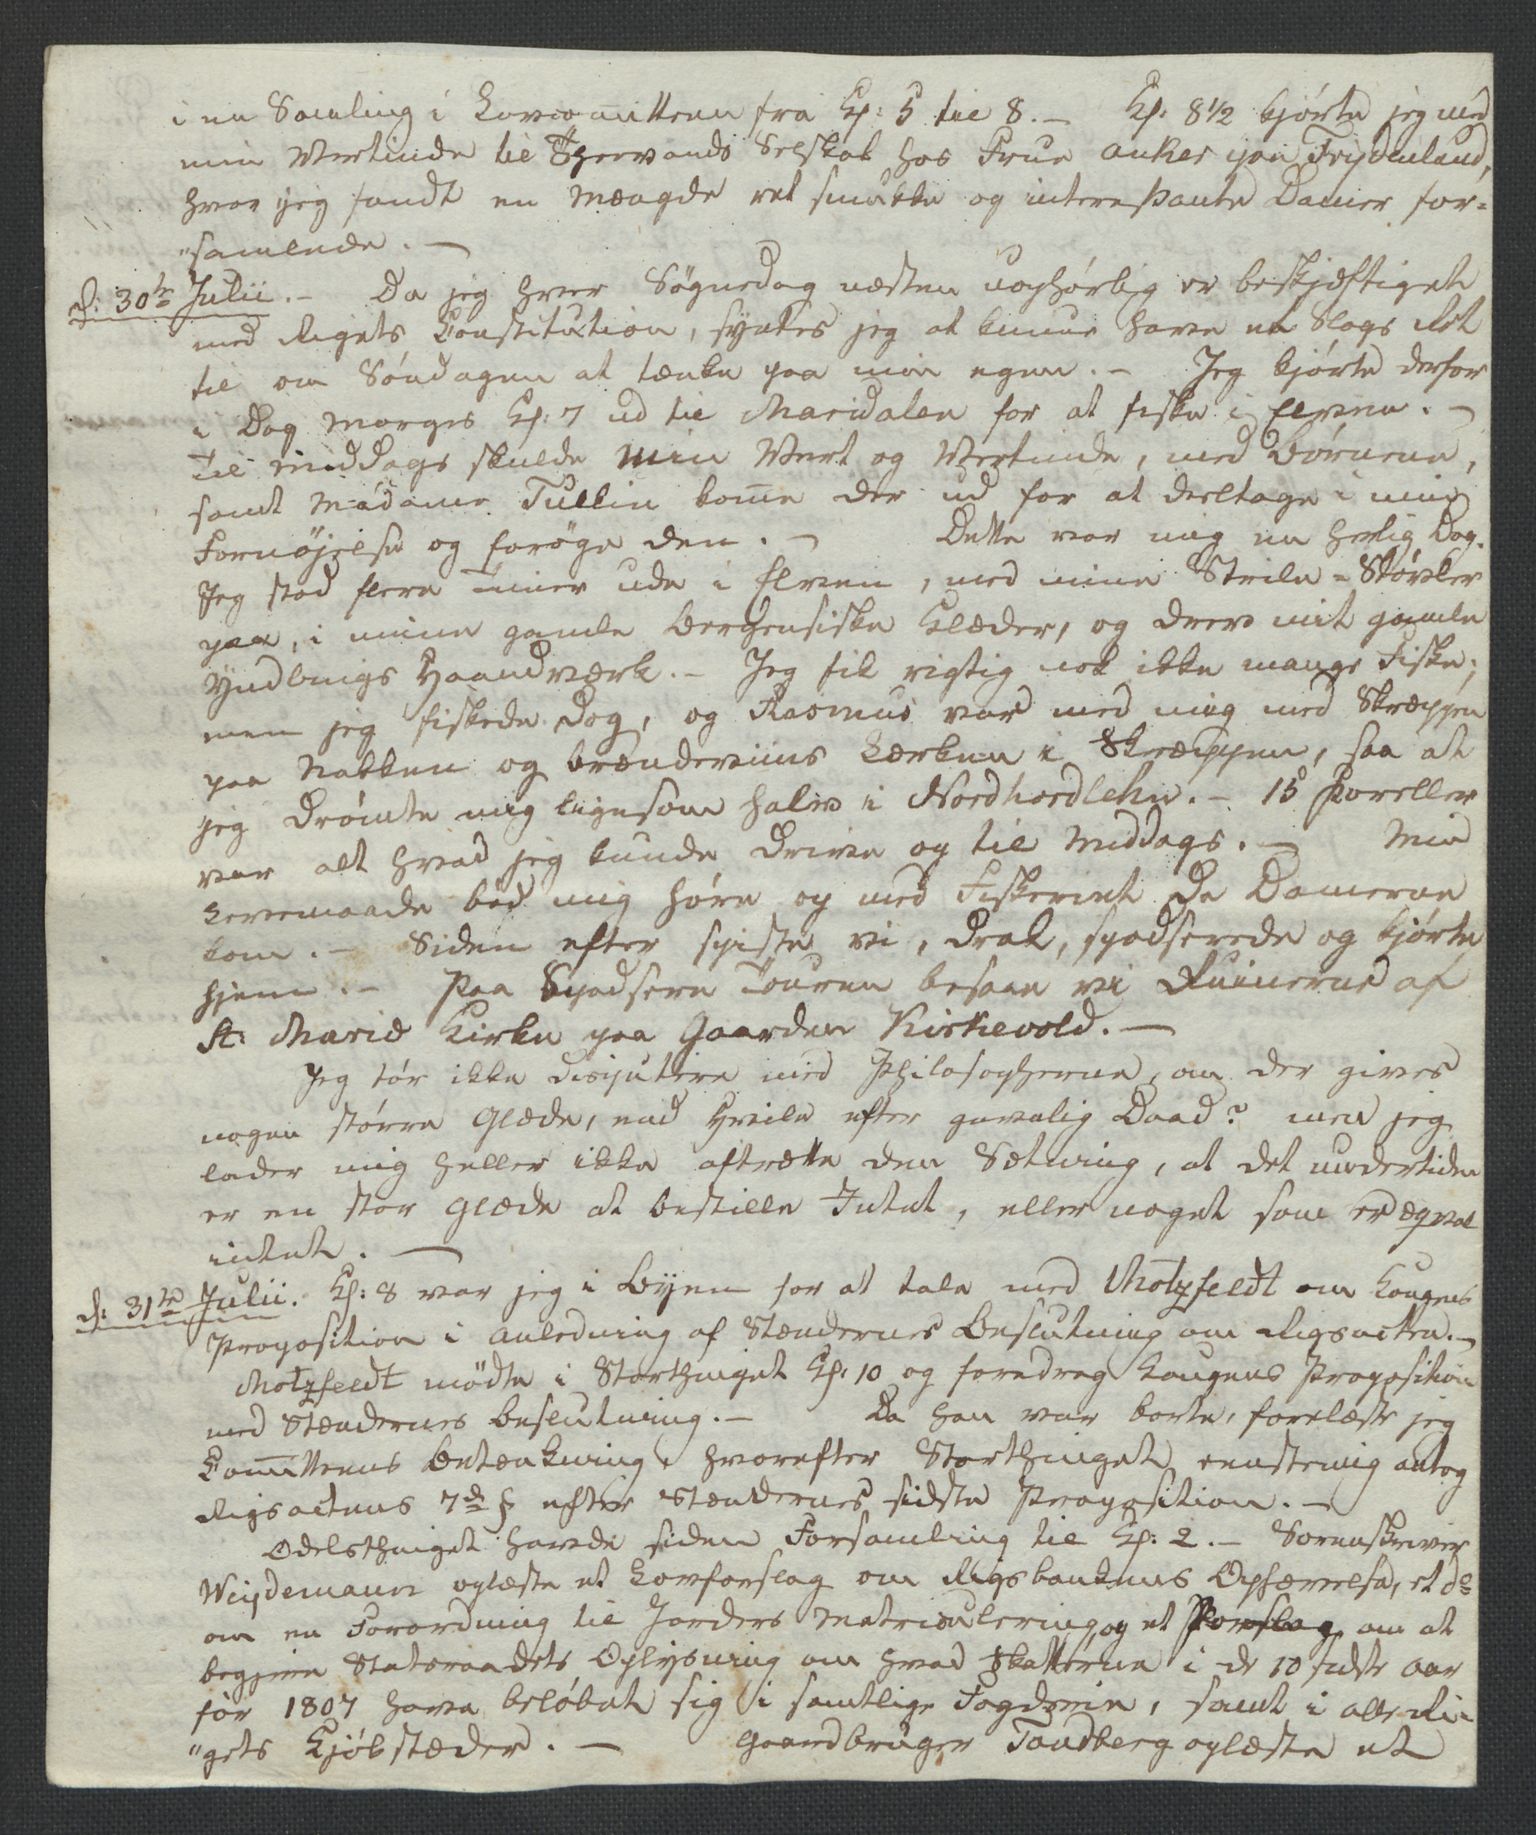 i en Samling i Lovcomitteen fra Kl: 5 til 8. – Kl. 8½ kjørte jeg med
min Vertinde til Theevands Selskab hos Frue Anker paa Frydenlund,
hvor jeg fandt en Mængde ret smukke og interessante Damer for-
"samlede. –
d: 30te Julii. – Da jeg hver Søgnedag næsten uophørlig er beskjæftiget
med Rigets Constitution, syntes jeg at kunne have en Slags Ret
til om Søndagen at tænke paa min egen. – Jeg kjørte derfor
i Dag Morges Kl: 7 ud til Maridalen for at fiske i Elven. –
Til Middags skulde min Vert og Vertinde, med Børnene,
samt Madame Tullin kom̅e der ud for at deeltage i min
Fornøjelse og forøge den. – Dette var mig en herlig Dag.
Jeg stod flere Timer ude i Elven, med mine Strile-Støvler
paa, i mine gamle Bergensiske Klæder, og drev mit gamle
Yndlings Haandværk. – Jeg fik rigtig nok ikke mange Fiske;
men jeg fiskede dog, og Rasmus var med mig med Skræppen
paa Nakken og Brændeviins Lærken i Skræppen, saa at
jeg drømte mig ligesom halv i Nordhordlehn. – 15 Foreller
var alt hvad jeg kunde drive op til Middags. – Min
Levemaade bød mig høre op med Fiskeriet da Damerne
kom. – Siden efter spiste vi, drak, spadserede og kjørte
hjem. – Paa Spadsere Touren besaae vi Ruinerne af
St: Mariæ Kirke paa Gaarden Kirkevold. –
Jeg tør ikke disputere med Philosopherne, om der gives
nogen større Glæde, end Hvile efter gavnlig Daad? men jeg
lader mig heller ikke aftrætte den Sætning, at det undertiden
er en stor Glæde at bestille Intet, eller noget som er æqval
intet. –
d: 31te Julii. Kl: 8 var jeg i Byen for at tale med Motzfeldt om Kongens
Proposition i Anledning af Stændernes Beslutning om Rigsacten. –
Motzfeldt mødte i Storthinget Kl: 10 og foredrog Kongens Proposition
med Stændernes Beslutning. – Da han var borte, forelæste jeg
Com̅itteens Betænkning, hvorefter Storthinget eenstemig antog
Rigsactens 7de § efter Stændernes sidste Proposition. –
Odelsthinget havde siden Forsamling til Kl: 2. – Sorenskriver
Weydemann oplæste et Lovforslag om Rigsbankens Ophævelse, et do
om en Forordning til Jorders Matriculering, og et Forslag om at
begjere Statsraadets Oplysning om hvad Skatterne i de 10 sidste Aar
før 1807 have beløbet sig i samtlige Fogderier, samt i alle Ri-
"gets Kjøbstæder. – Gaardbruger Tandberg oplæste et